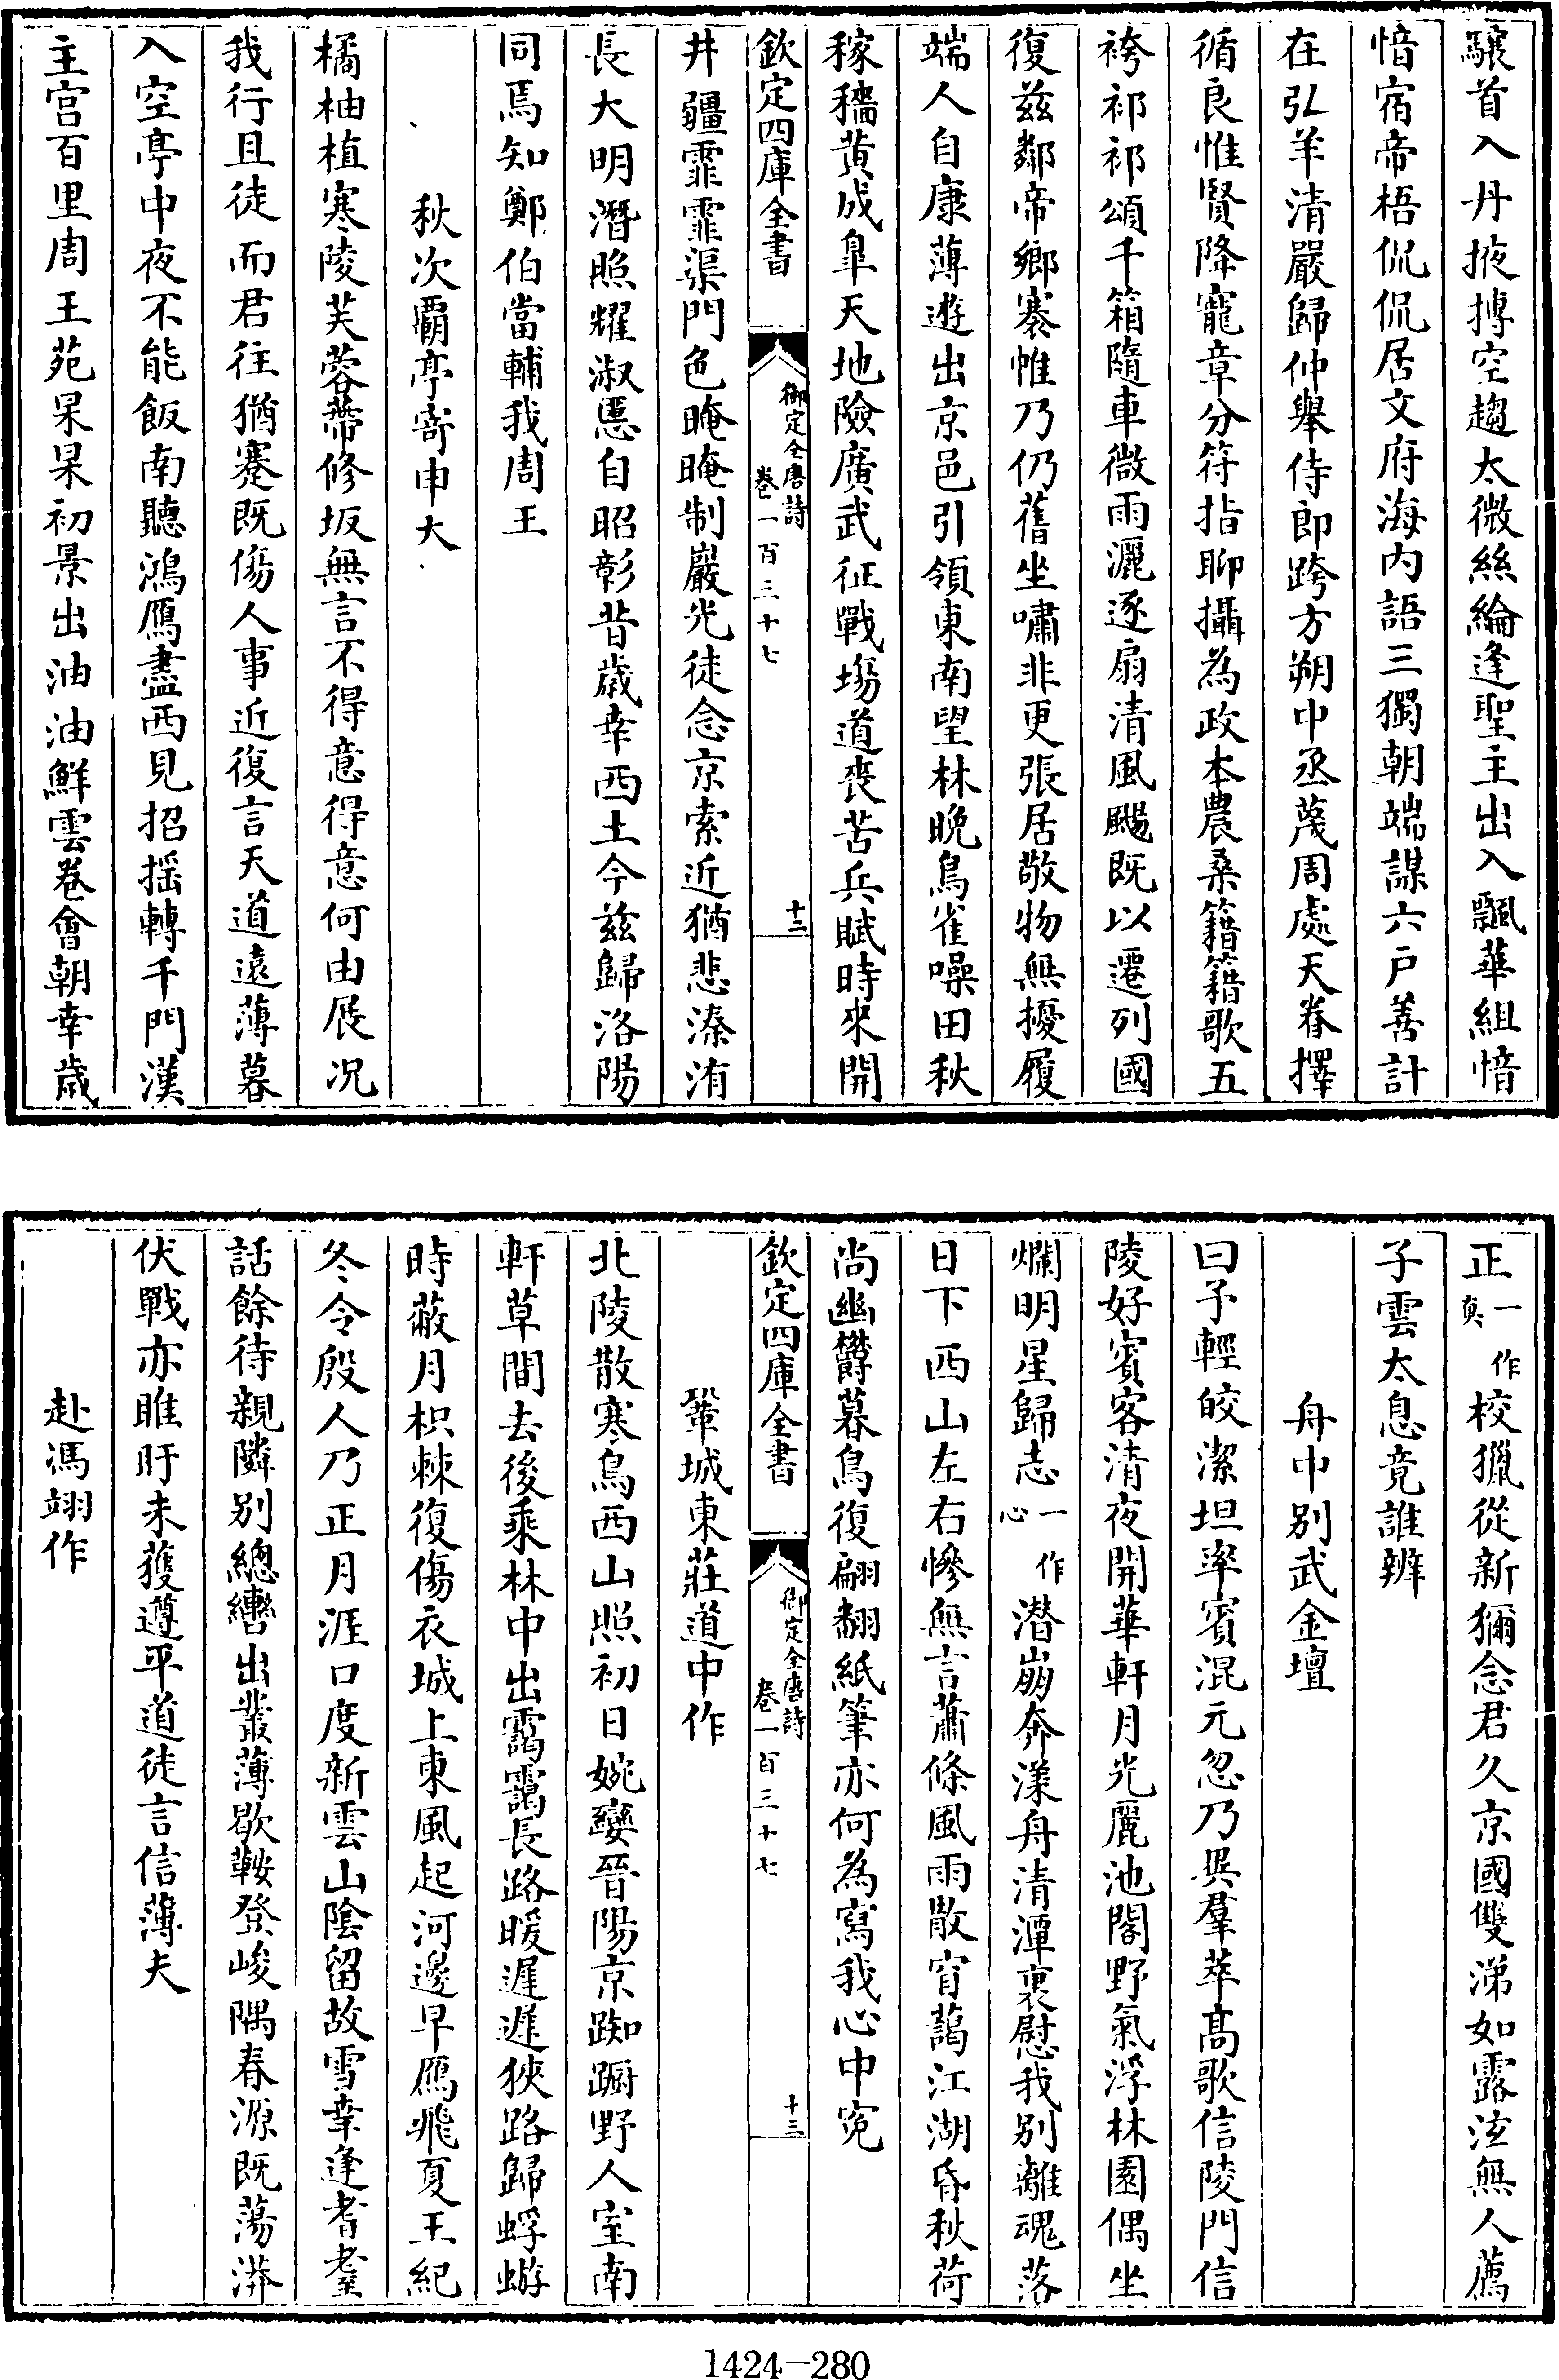 驤首入丹掖摶空趨太微絲綸逢聖主出入飄華組愔
愔宿帝梧侃侃居文府海内語三獨朝端謀六户善計
在弘羊清嚴歸仲舉侍郎跨方朔中丞蔑周處天眷擇
循良惟賢降寵章分符指聊攝為政本農桑籍籍歌五
袴祁祁頌千箱隨車微雨灑逐扇清風颺既以遷列國
復兹鄰帝鄉褰帷乃仍舊坐嘯非更張居敬物無擾履
端人自康薄遊出京邑引領東南望林晚鳥雀噪田秋
稼穡黄成臯天地險廣武征戰場道喪苦兵賦時來開
欽定四庫全書
御定全唐詩
卷一百三十七
十二
井疆霏霏渠門色晻晻制巖光徒念京索近猶悲溱洧
長大明潛照耀淑慝自昭彰昔歲幸西土今兹歸洛陽
同焉知鄭伯當輔我周王
秋次霸亭寄申大
橘柚植寒陵芙蓉蒂修坂無言不得意得意何由展况
我行且徒而君往猶蹇既傷人事近復言天道遠薄暮
入空亭中夜不能飯南聽鴻鴈盡西見招摇轉千門漢
主宫百里周王苑杲杲初景出油油鮮雲卷會朝幸歲
正一作真校獵從新獮念君久京國雙涕如露泫無人薦
子雲太息竟誰辨
舟中别武金壇
曰予輕皎潔坦率賓混元忽乃異羣萃高歌信陵門信
陵好賓客清夜開華軒月光麗池閣野氣浮林園偶坐
爛明星歸志一作心潜崩奔漾舟清潭裏慰我别離魂落
日下西山左右慘無言蕭條風雨散窅藹江湖昏秋荷
尚幽欝暮鳥復翩翻紙筆亦何為寫我心中寃
欽定四庫全書
御定全唐詩
卷一百三十七
十三
鞏城東莊道中作
北陵散寒鳥西山照初日婉孌晉陽京踟蹰野人室南
軒草間去後乘林中出靄靄長路暖遲遲狹路歸蜉蝣
時蔽月枳棘復傷衣城上東風起河邊早鴈飛夏王紀
冬令殷人乃正月涯口度新雲山陰留故雪幸逢耆耋
話餘待親隣别總轡出叢薄歇鞍登峻隅春源既蕩漭
伏戰亦睢盱未獲遵平道徒言信薄夫
赴馮翊作
1424－280